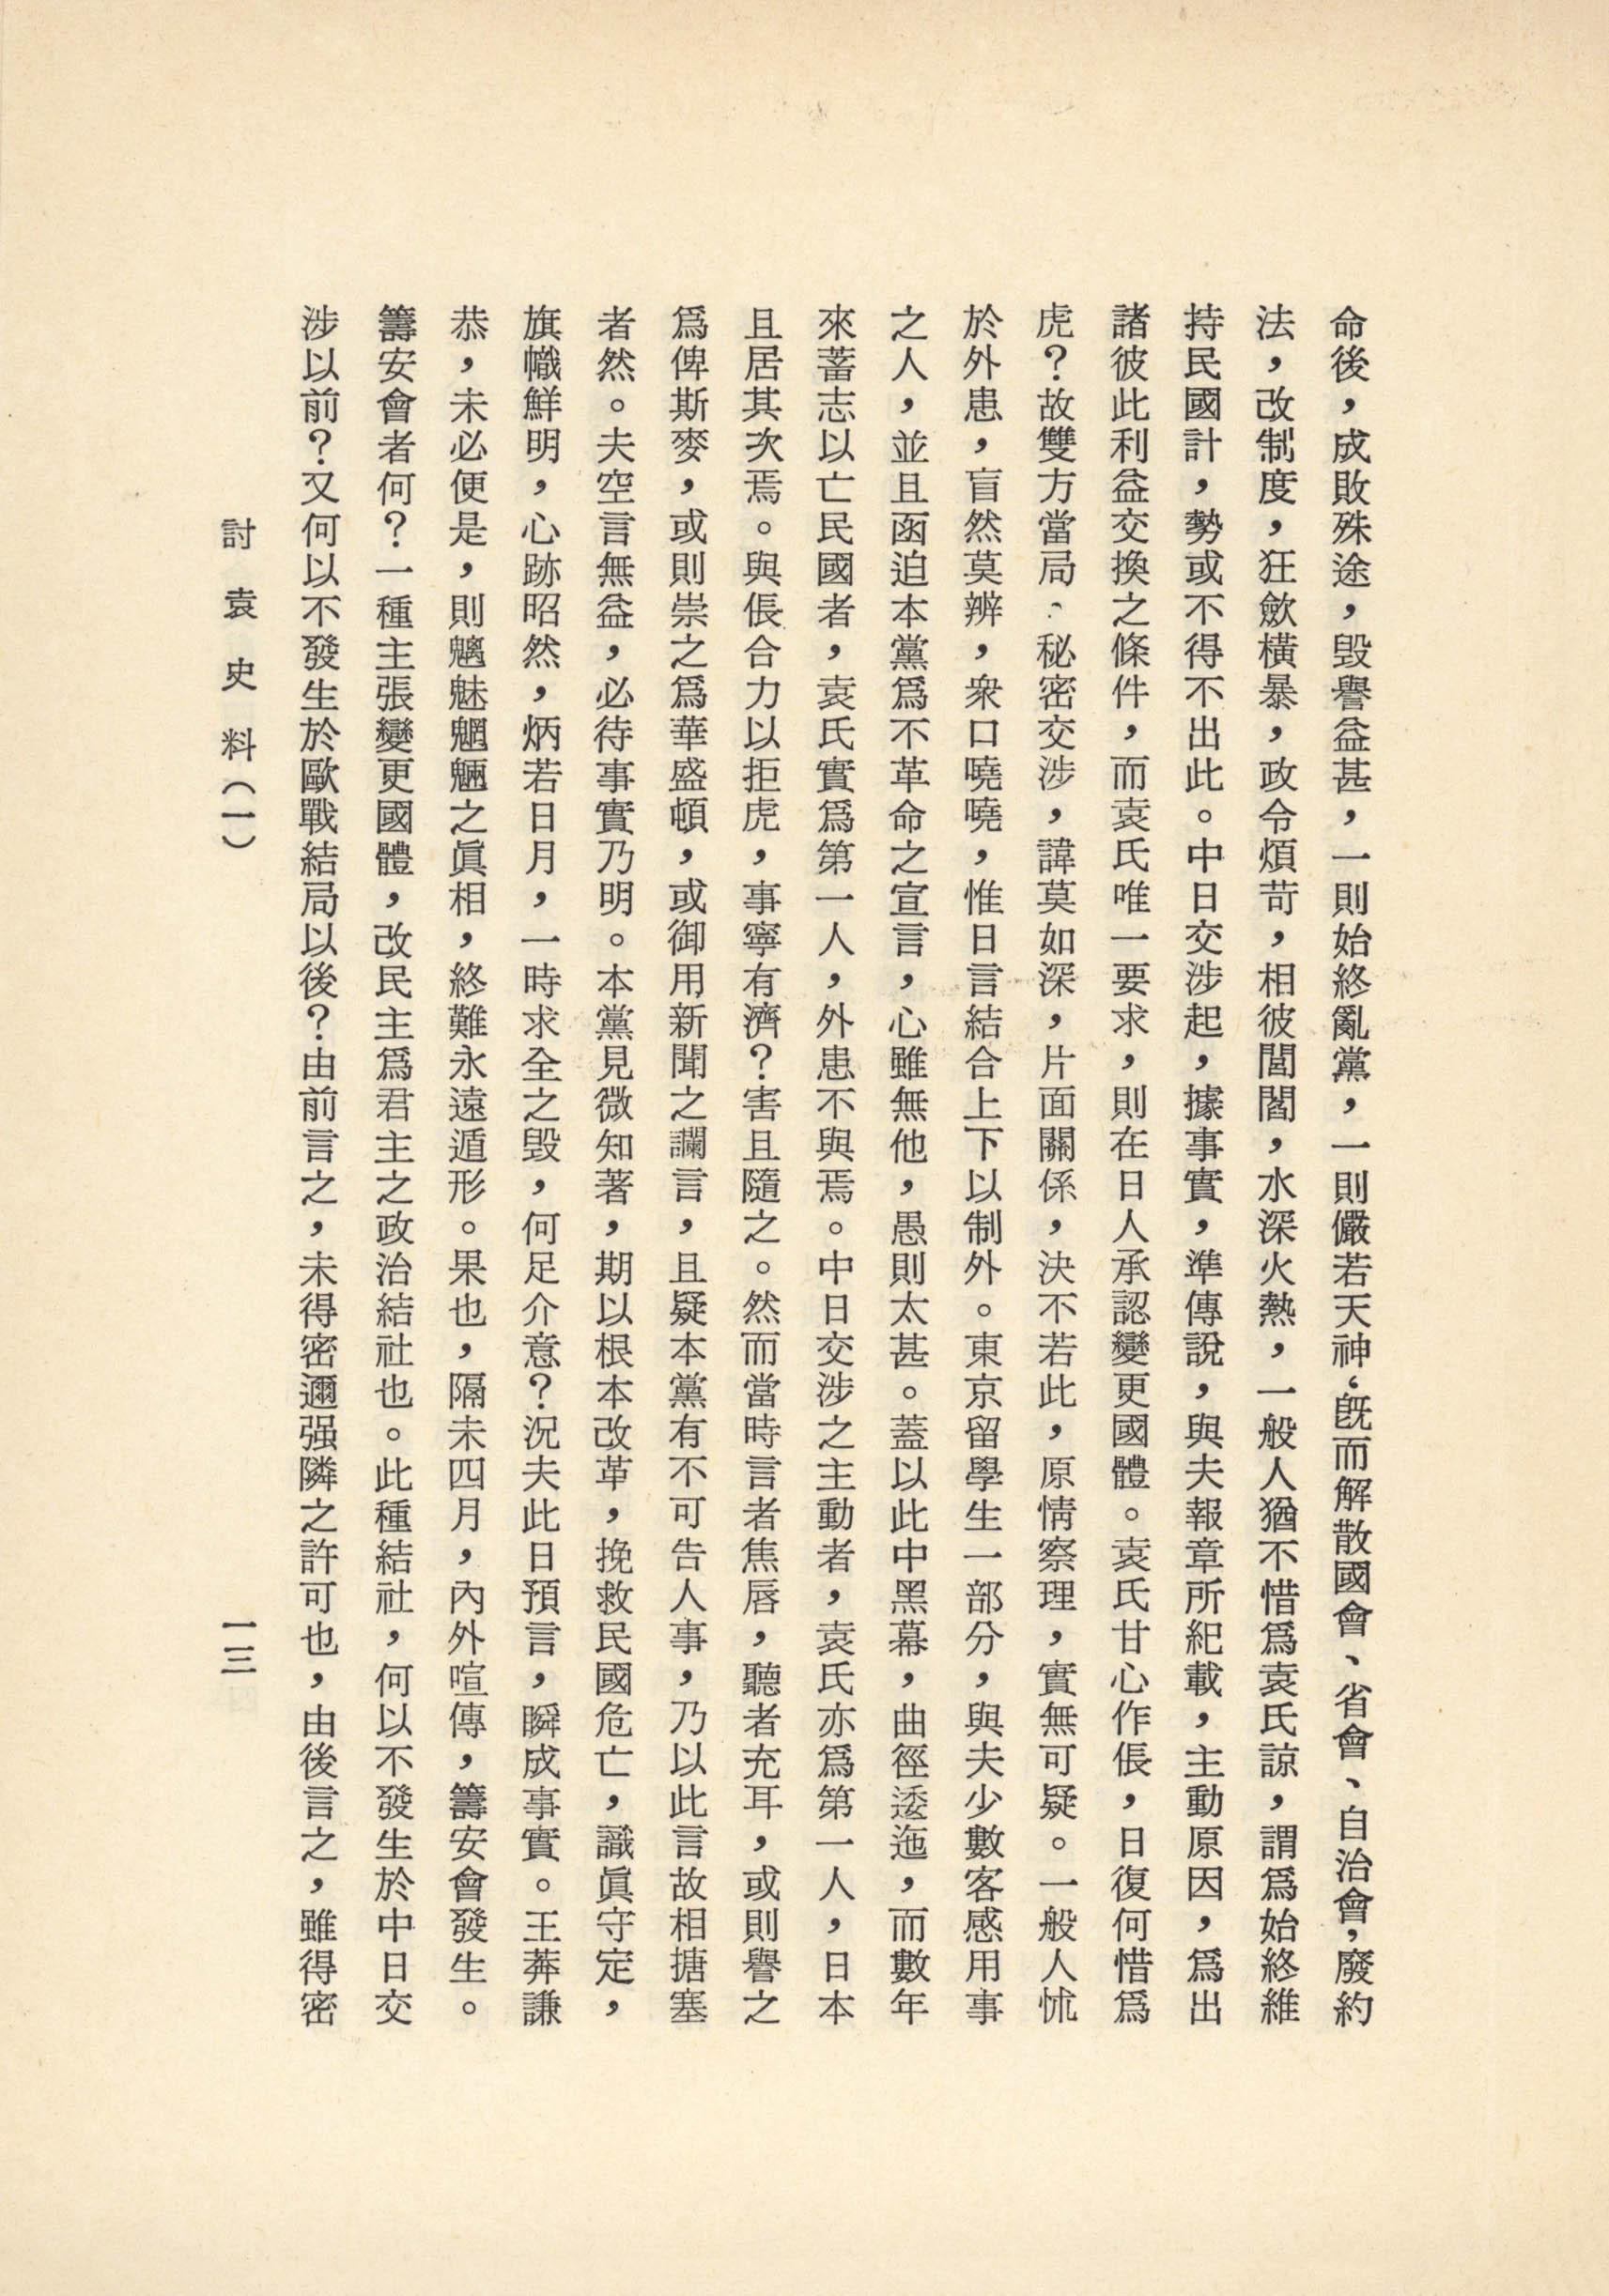 命後，成敗殊途，毀譽益甚，一則始終亂黨，一則儼若天神，旣而解散國會、省會、自治會，廢約
法，改制度，狂歛橫暴，政令煩苛，相彼閭閻，水深火熱，一般人猶不惜爲袁氏諒，謂爲始終維
持民國計，勢或不得不出此。中日交涉起，據事實，準傳說，與夫報章所紀載，主動原因，爲出
諸彼此利益交換之條件，而袁氏唯一要求，則在日人承認變更國體。袁氏甘心作倀，日復何惜爲
虎？故雙方當局，秘密交涉，諱莫如深，片面關係，決不若此，原情察理，實無可疑。一般人怵
於外患，盲然莫辨，衆口嘵嘵，惟日言結合上下以制外。東京留學生一部分，與夫少數客感用事
之人，並且函迫本黨爲不革命之宣言，心雖無他，愚則太甚。蓋以此中黑幕，曲徑逶迤，而數年
來蓄志以亡民國者，袁氏實爲第一人，外患不與焉。中日交涉之主動者，袁氏亦爲第一人，日本
且居其次焉。與倀合力以拒虎，事寧有濟？害且隨之。然而當時言者焦唇，聽者充耳，或則譽之
爲俾斯麥，或則崇之爲華盛頓，或御用新聞之讕言，且疑本黨有不可告人事，乃以此言故相搪塞
者然。夫空言無益，必待事實乃明。本黨見微知著，期以根本改革，挽救民國危亡，識眞守定，
旗幟鮮明，心跡昭然，炳若日月，一時求全之毀，何足介意？況夫此日預言，瞬成事實。王莽謙
恭，未必便是，則魑魅魍魎之眞相，終難永遠遁形。果也，隔未四月，內外喧傳，籌安會發生。
籌安會者何？一種主張變更國體，改民主爲君主之政治結社也。此種結社，何以不發生於中日交
涉以前？又何以不發生於歐戰結局以後？由前言之，未得密邇强隣之許可也，由後言之，雖得密
討袁史料（一）
一三